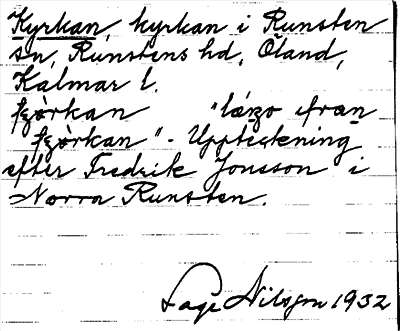 Kyrkan, kyrkan i Runsten
sn, Runstens hd, Öland,
Kalmar l.
"från
" - Uppteckning
efter Fredrik Jonsson i
Norra Runsten.
Page Nilsson 1932